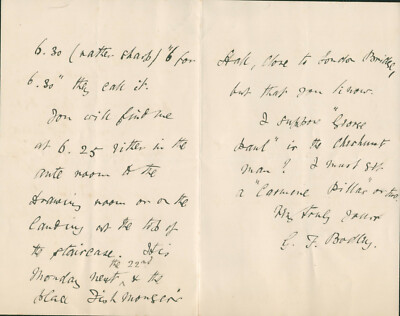 6.30 (rather sharp) "6 for
6.30" they call it.
You will find me
at 6.25 either in the
ante room to the
drawing room or on the
landing at the top of
the staircase. It is
the 22nd
Monday next & the
place Fishmongers'
Hall, close to London Bridge,
but that you know.
I suppose "George
Maul" is the Chislehurst
man? I must get
a "Carmine Pillar" or two.
Very truly yours
G. F. Bodley.